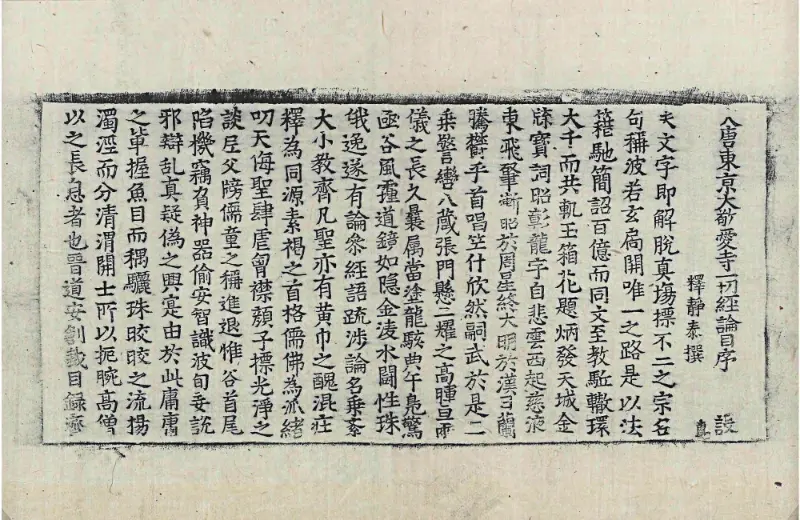 大唐東京大敬愛寺一切經論目序 設
釋靜泰撰
夫文字即解脫真場標不二之宗名
句稱波若玄扃開唯一之路是以法
籍馳簡詔百億而同文至教駈轍環
大千而共軌玉箱花題炳發天城金
牒寶詞昭彰龍字自悲雲西起慈液
東飛肇漸昭於周星終大明於漢日蘭
騰欝乎首唱竺什欣然嗣武於是二
乘警轡八藏張門懸二耀之高暉亘兩
儀之長久曩属當塗龍駭典午梟驚
函谷風霾道鏡如隱金淩水闘性珠
俄逸遂有論參經語䟽涉論名乗紊
大小教齊凡聖亦有黄巾之醜混莊
釋為同源素褐之首格儒佛為派緒
叨天侮聖肆虐曾襟顔子標光淨之
談尼父牓儒童之稱進退惟谷首尾
陷機竊負神器偷安智識波旬妄說
邪辯乱真疑偽之興寔由於此庸庸
之輩握魚目而稱驪珠晈晈之流揚
濁涇而分清渭開士所以扼腕髙僧
以之長息者也晉道安創裁目録齊